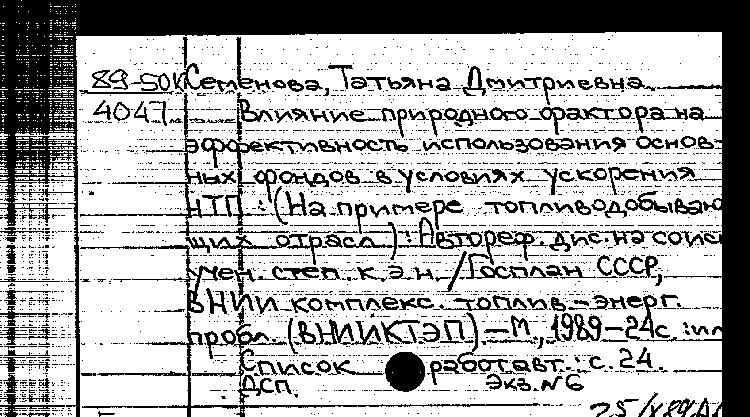 89-50к Семенова, Татьяна Дмитриевна.
4047 Влияние природного фактора на
эффективность использования основ-
ных фондов в условиях ускорения
НТП : (На примере топливодобываю
щих отрасл.) : Автореф. дис. на соиск
учен. степ. к.э.н. / Госплан СССР,
ВНИИ комплекс. топлив.-энерг.
пробл. (ВНИИКТЭП) – М., 1989 – 24с. : ил
Список работ авт. : с. 24.
ДСП. Экз. №6